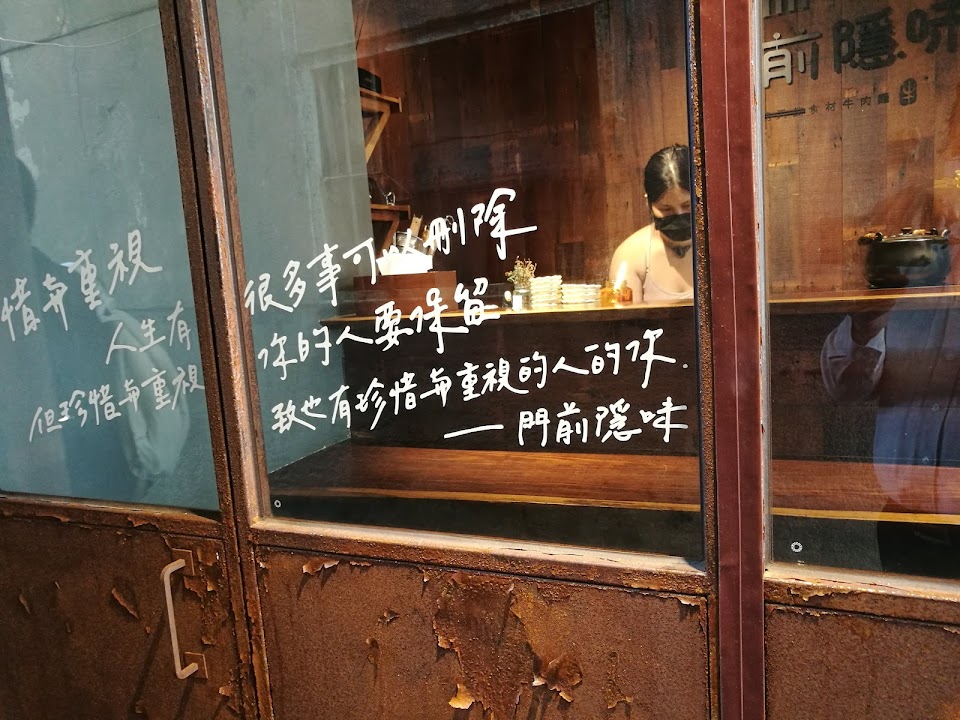 惜與重視
人生有
但珍惜與重視
很多事可以刪除
你的人要保留
致也有珍惜與重視的人的你.
—— 門前隱味
前隱味
食材牛肉